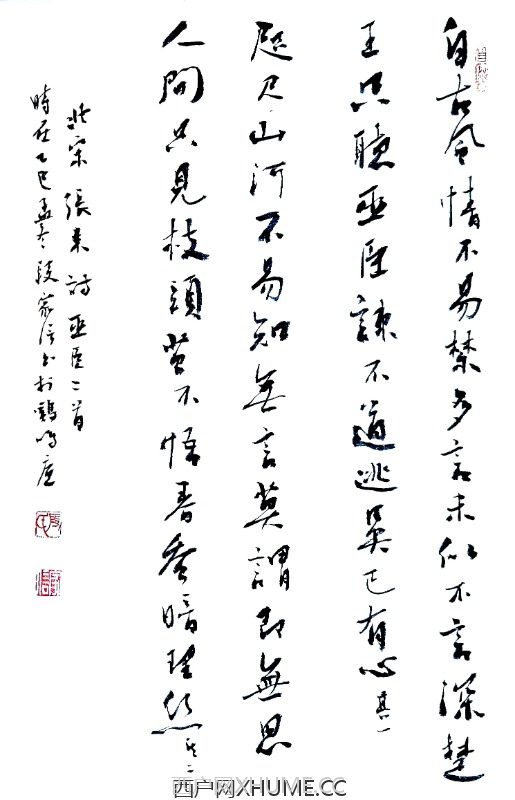 自古风情不易禁多言未似不言深楚
王只聽巫臣諫不道逃吴已有心其一
咫尺山河不易知無言莫謂即無思
人間只見枝頭茧不悟春蚕暗理丝其二
北宋張耒詩巫臣二首
時在乙巳孟冬段家信书於鷄鳴
西户网XHUME.CC